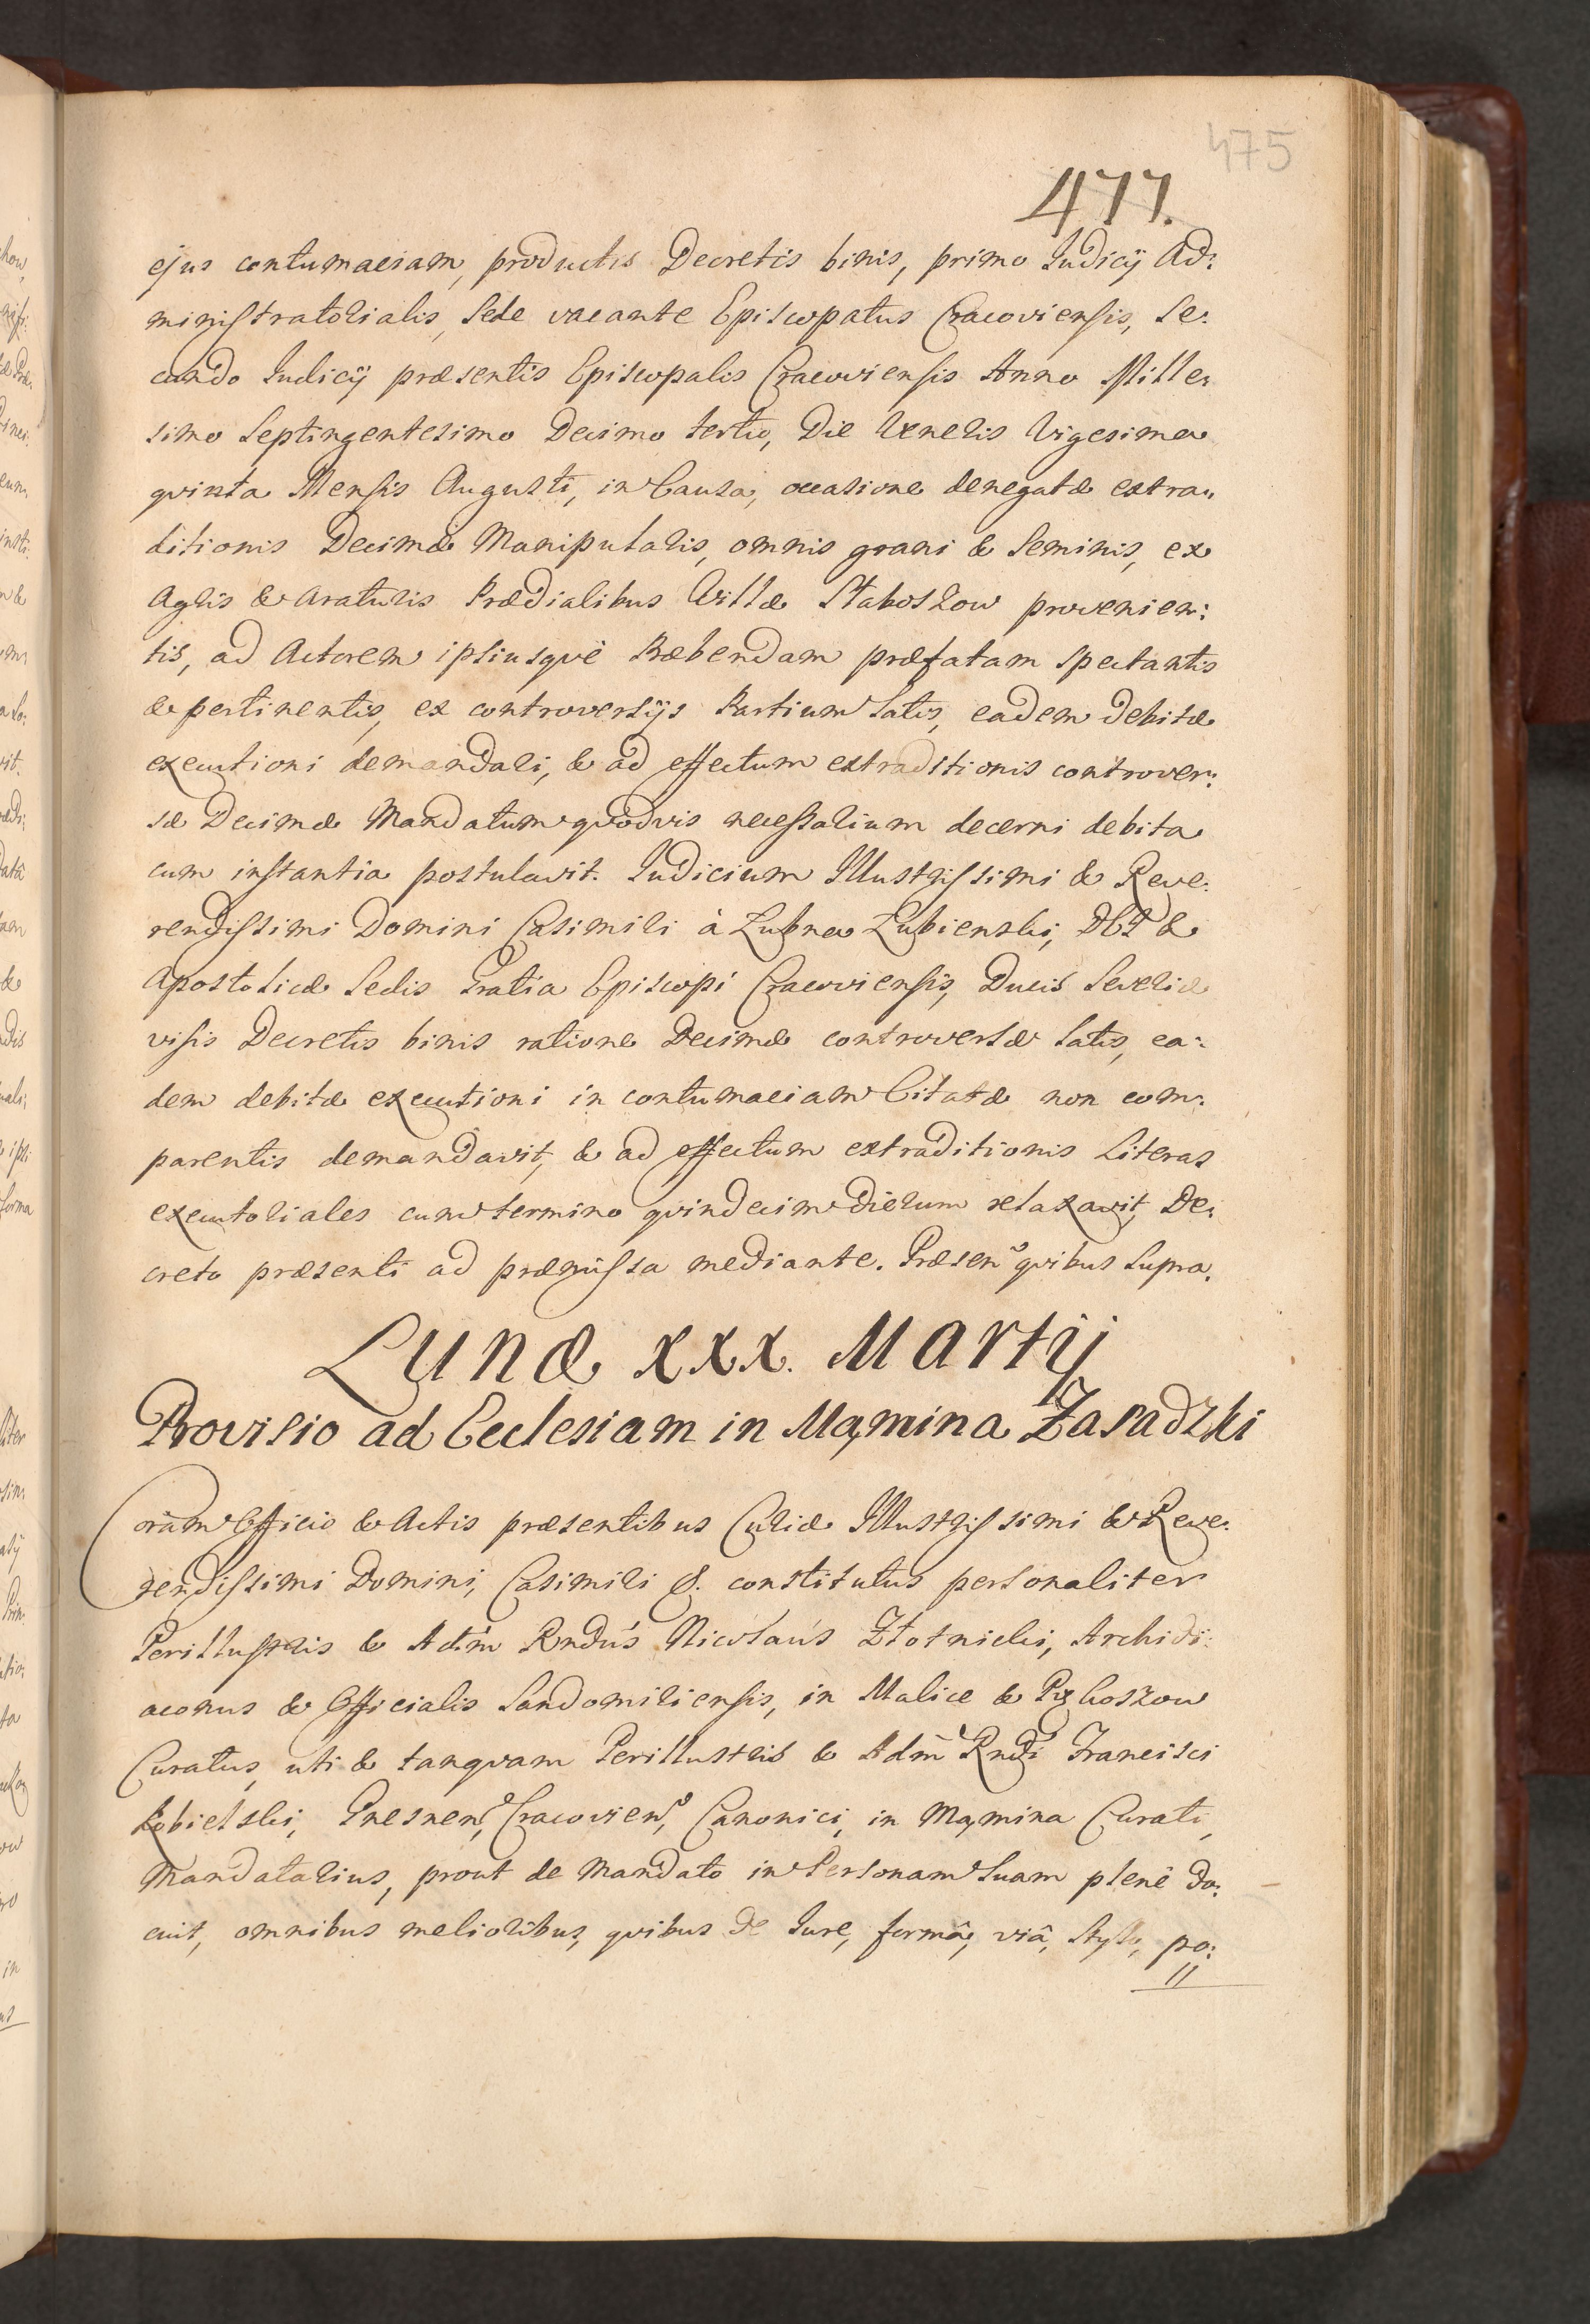 475
477.
ejus contumaciam, productis Decretis binis, primo Iudicij Ad:
ministratorialis, Sede vacante Episcopatus Cracoviensis, Se:
cundo Iudicij præsentis Episcopalis Cracoviensis Anno Mille:
simo Septingentesimo Decimo tertio, Die Veneris Vigesima
qvinta Mensis Augusti, in Causa, occasione denegatæ extra:
ditionis Decimæ Manipularis, omnis grani & Seminis, ex
Agris & Araturis Prædialibus Villæ Stáboszow provenien:
tis, ad Actorem ipsiusqvè Præbendam præfatam spectantis
& pertinentis, ex controversijs Partium Latis, eadem debitæ
executioni demandari, & ad effectum extraditionis controver:
sæ Decimæ Mandatum qvodvis necessarium decerni debita
cum instantia postulavit. Iudicium Illustrissimi & Reve:
rendissimi Domini Casimiri à Łubna Łubienski, DEI &
Apostolicæ Sedis Gratia Episcopi Cracoviensis, Ducis Severiæ
visis Decretis binis ratione Decimæ controversæ Latis, ea:
dem debitæ executioni in contumaciam Citatæ non com:
parentis demandavit, & ad effectum extraditionis Literas
executoriales cum termino qvindecim dierum relaxavit, De:
creto præsenti ad præmissa mediante. Præsen qvibus Supra.
Lunæ XXX. Martij
Provisio ad Ecclesiam in Mąmina Zasadzki
Coram Officio & Actis præsentibus Curiæ Illustrissimi & Reve:
rendissimi Domini, Casimiri &. constitutus personaliter
Perillustris & Adm Rndus Nicolaus Złotnicki, Archidi:
aconus & Officialis Sandomiriensis, in Malice &
Curatus, uti & tanqvam Perillustris & Adm Rndi Francisci
Kobielski, Gnesnen, Cracovien, Canonici, in Mąmina Curati,
Mandatarius, prout de Mandato in Personam Suam plenè do:
cuit, omnibus melioribus, qvibus de Iure, formâ, viâ, Stylo, po: